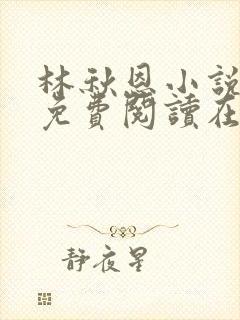 林秋恩小說
免費閱讀在
靜夜星